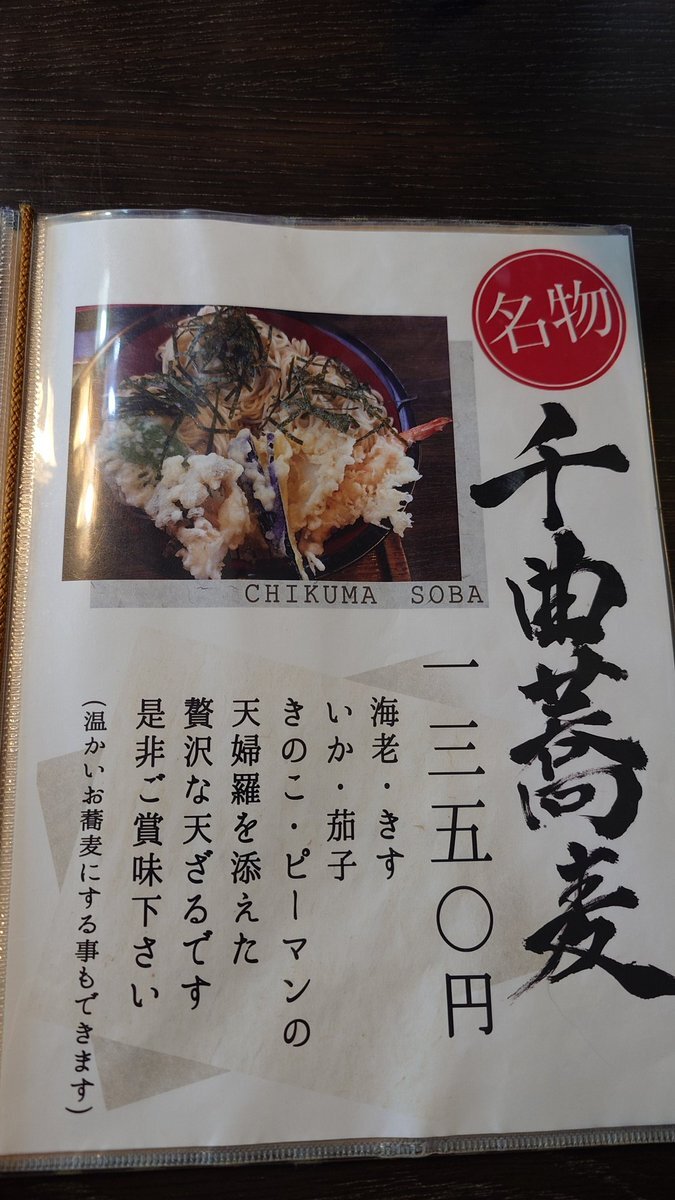 名物
千曲蕎麦
CHIKUMA SOBA
一三五〇円
海老・きす
いか・茄子
きのこ・ピーマンの
天婦羅を添えた
贅沢な天ざるです
是非ご賞味下さい
(温かいお蕎麦にする事もできます)